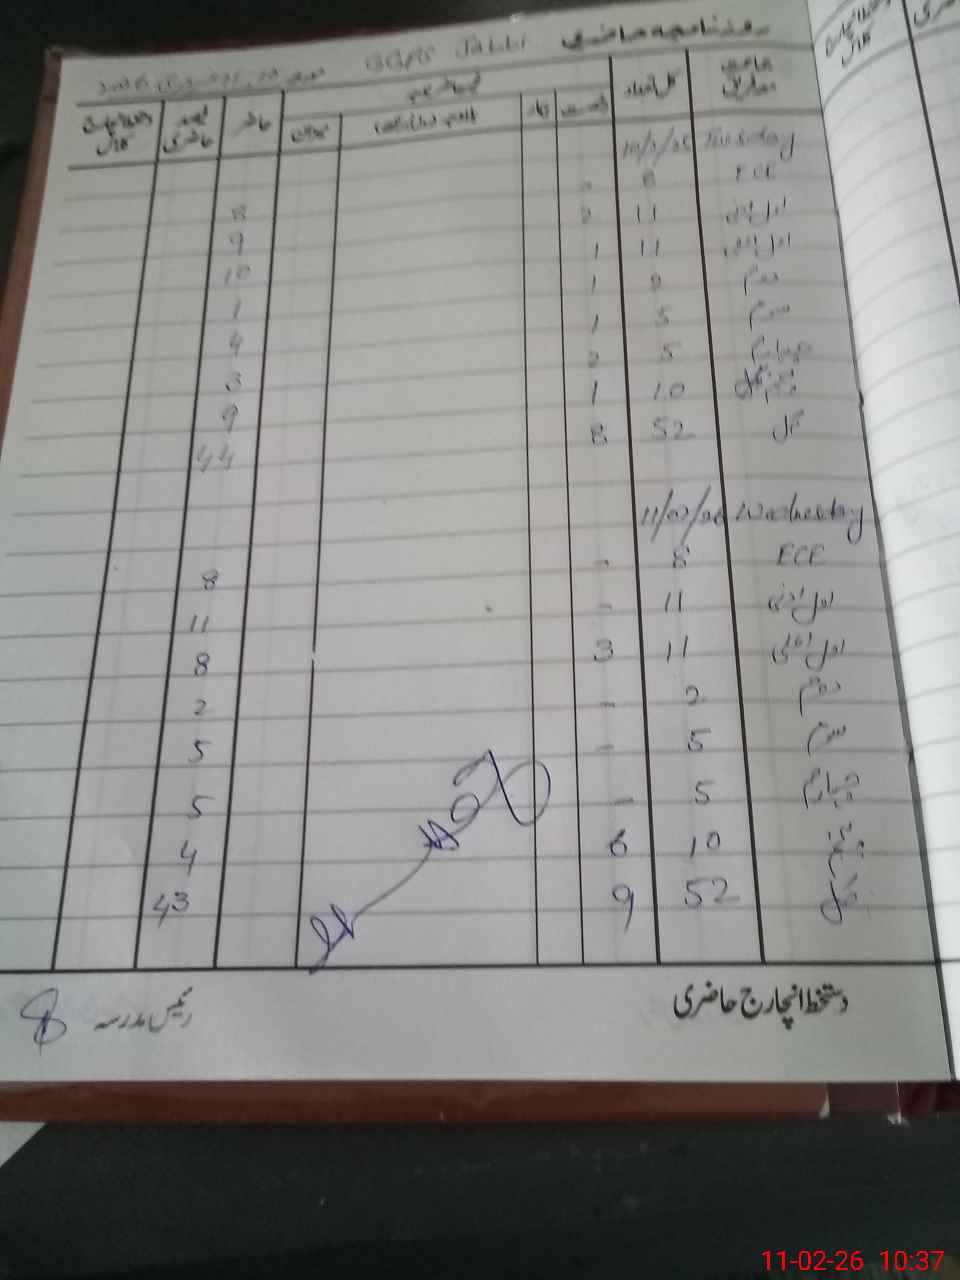 روزنامچہ حاضری GGPS Jalli
جماعت کل تعداد رخصت بیمار غیر حاضر میزان حاضر فیصد حاضری
10/2/26 Tuesday
ECE 8 - 8
اول ادنیٰ 11 2 9
اول اعلیٰ 11 1 10
دوم 2 1 1
سوم 5 1 4
چہارم 5 2 3
پنجم 10 1 9
کل 52 8 44
11/02/26 Wednesday
ECE 8 - 8
اول ادنیٰ 11 - 11
اول اعلیٰ 11 3 8
دوم 2 - 2
سوم 5 - 5
چہارم 5 - 5
پنجم 10 6 4
کل 52 9 43
دستخط انچارج حاضری
رئیس مدرسہ
11-02-26 10:37